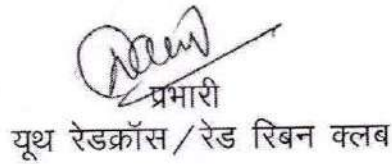 प्रभारी
यूथ रेडक्रॉस / रेड रिबन क्लब